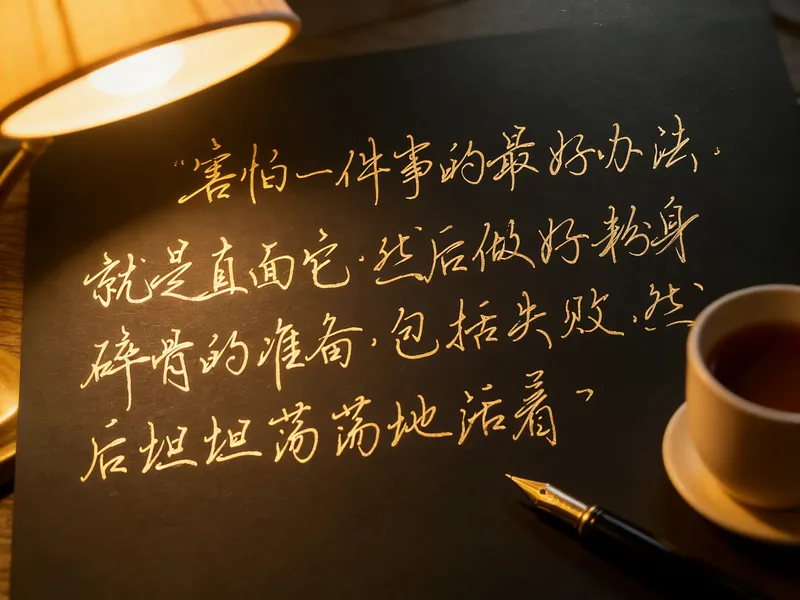 “害怕一件事的最好办法，
就是直面它，然后做好粉身
碎骨的准备，包括失败，然
后坦坦荡荡地活着”